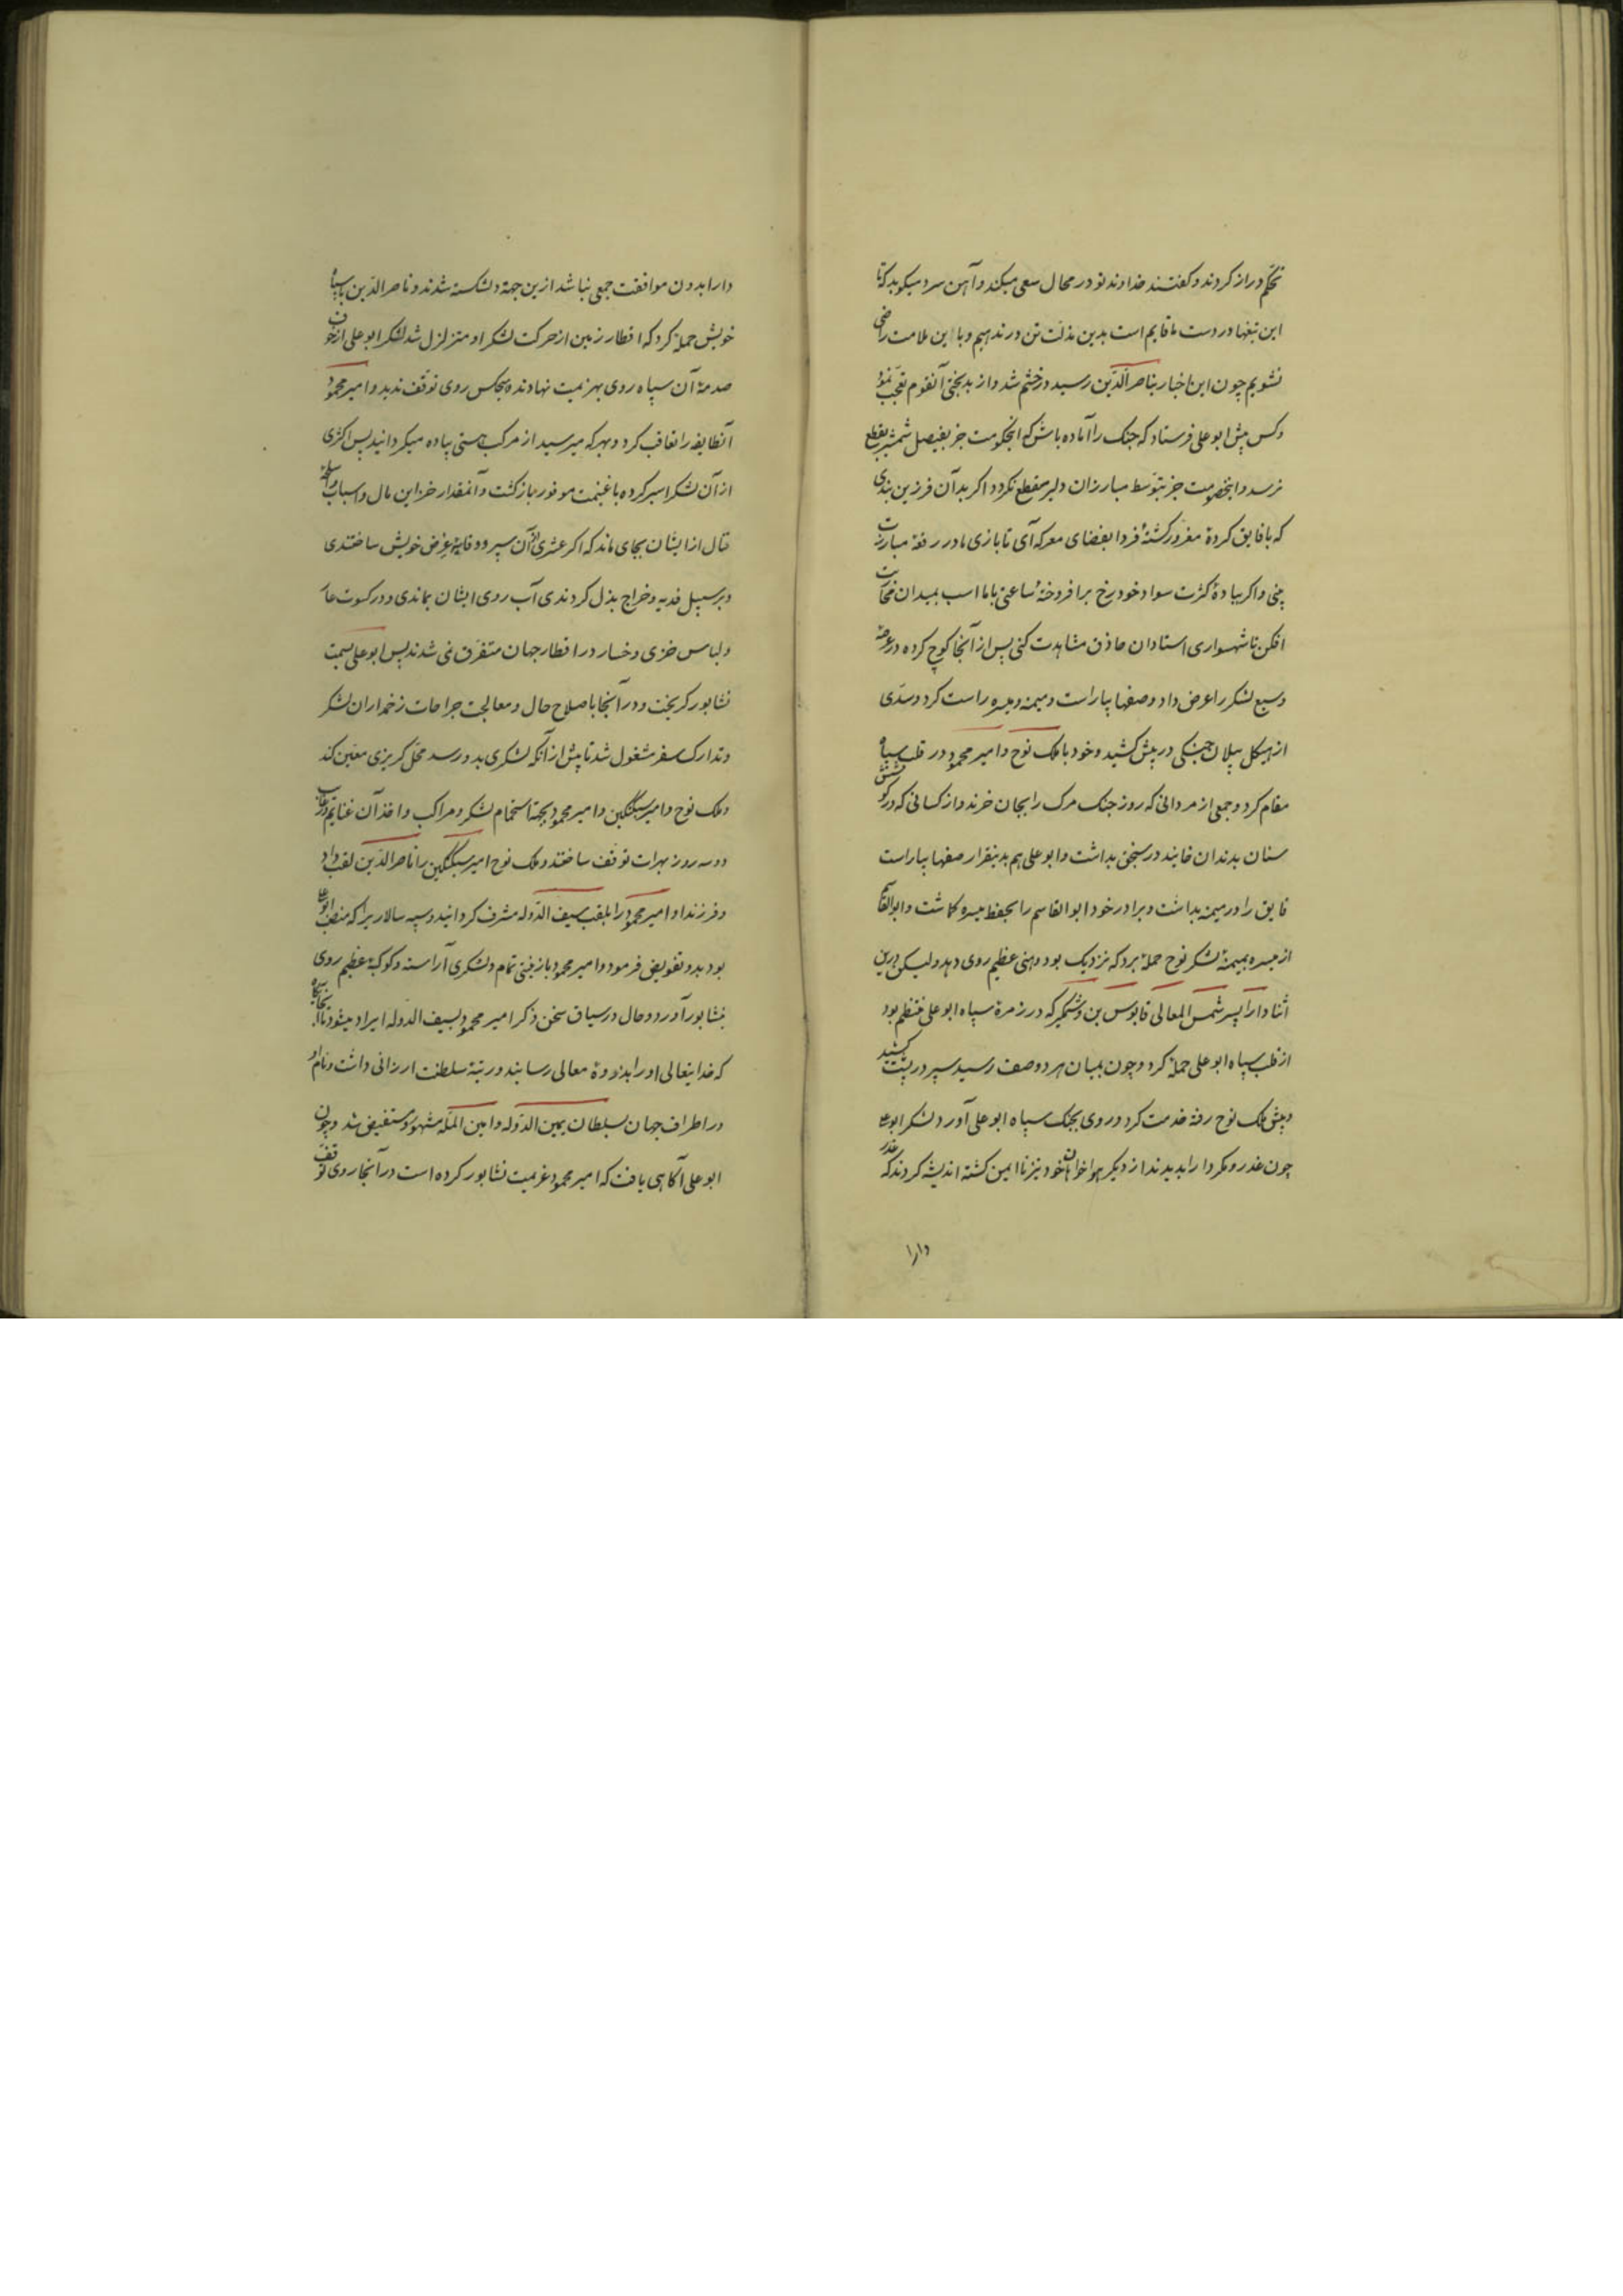 تحکم دراز کردند و کفتند خداوند تو در محال سعی میکند و آهن سرد میکوبد که تا
این تیغها در دست ما قایم است بدین مذلت تن در ندهیم و با این ملامت راضی
نشویم چون این اخبار بناصرالدین رسید در خشم شد و از بدبختی آنقوم تعجب نمود
و کس پیش ابو علی فرستاد که جنک را آماده باش که اینحکومت جز بفیصل شمشیر بقطع
نرسد و اینخصومت جز بتوسط مبارزان دلیر منقطع نکردد اکر بدآن فرزین بندی
که با فایق کرده مغرور کشتهٔ فردا بفضای معرکه آی تا بازی مادر رقعهٔ مبارزت
بینی و اکر بیادهٔ کثرت سواد خود رخ برافروختهٔ ساعتی با ما اسب بمیدان
افکن تا شهسواری استادان حاذق مشاهدت کنی پس از آنجا کوچ کرده در عرصهٔ
وسیع لشکر را عرض داد و صفها بیاراست و میمنه و میسره راست کرد و سدی
از هیکل پیلان جنکی در پیش کشید و خود با ملک نوح و امیر محمود در قلب سپاه
مقام کرد و جمعی از مردانی که روز جنک مرک را بجان خرند و از کسانی که در کوشش
سنان بدندان خایند در سنجق بداشت و ابو علی هم بدینقرار صفها بیاراست
فایق را در میمنه بداشت و برادر خود ابوالقاسم را بحفظ میسره کماشت و ابوالقاسم
از میسره بمیمنهٔ لشکر نوح حمله برد که نزدیک بود وهنی عظیم روی دهد و لیکن درین
اثنا دارا پسر شمس المعالی قابوس بن وشمکیر که در زمرهٔ سپاه ابو علی منتظم بود
از قلب سپاه ابو علی حمله کرد و چون بمیان هر دو صف رسید سپر در پشت کشید
و پیش ملک نوح رفته خدمت کرد و روی بجنک سپاه ابو علی آورد لشکر ابو علی
چون غدر و مکر دارا بدیدند از دیکر هواخواهان خود نیز نا ایمن کشته اندیشه کردند که غدر
دارا
دارا بدون موافقت جمعی نباشد ازین جهة دلشکسته شدند و ناصرالدین با سپاه
خویش حمله کرد که اقطار زمین از حرکت لشکر او متزلزل شد لشکر ابو علی از خوف
صدمهٔ آن سپاه روی بهزیمت نهادند و هیچکس روی توقف ندید و امیر محمود
آنطایفه را تعاقب کرد و بهر که میرسید از مرکب هستی پیاده میکردانید پس اکثری
از آن لشکر اسیر کرده با غنیمت موفور بازکشت و آنمقدار خزاین مال و اسباب و اسلحهٔ
قتال از ایشان بجای ماند که اکر عشری از آن سپر و وقایهٔ عرض خویش ساختندی
و بر سبیل فدیه و خراج بذل کردندی آب روی ایشان بماندی و در کسوت عار
و لباس خزی و خسار در اقطار جهان متفرق نمی شدند پس ابو علی بسمت
نشابور کریخت و در آنجا باصلاح حال و معالجت جراحات زخمداران لشکر
و تدارک سفر مشغول شد تا پیش از آنکه لشکری بدو رسد محل کریزی معین کند
و ملک نوح و امیر سبکتکین و امیر محمود بجهة استجمام لشکر و مراکب و اخذ آن غنایم و رغایب
دو سه روز بهرات توقف ساختند و ملک نوح امیر سبکتکین را ناصرالدین لقب داد
و فرزند او امیر محمود را بلقب سیف الدوله مشرف کردانید و سپه سالاریرا که منصب ابو علی
بود بدو تفویض فرمود و امیر محمود با زینتی تمام و لشکری آراسته و کوکبهٔ عظیم روی
بنشابور آورد و حال در سیاق سخن ذکر امیر محمود بسیف الدوله ایراد میشود تا آنجایکاه
که خدایتعالی او را بذروهٔ معالی رسانید و رتبهٔ سلطنت ارزانی داشت و نام او
در اطراف جهان بسلطان یمین الدوله و امین المله مشهور و مستفیض شد و چون
ابو علی آکاهی یافت که امیر محمود عزیمت نشابور کرده است در آنجا روی توقف